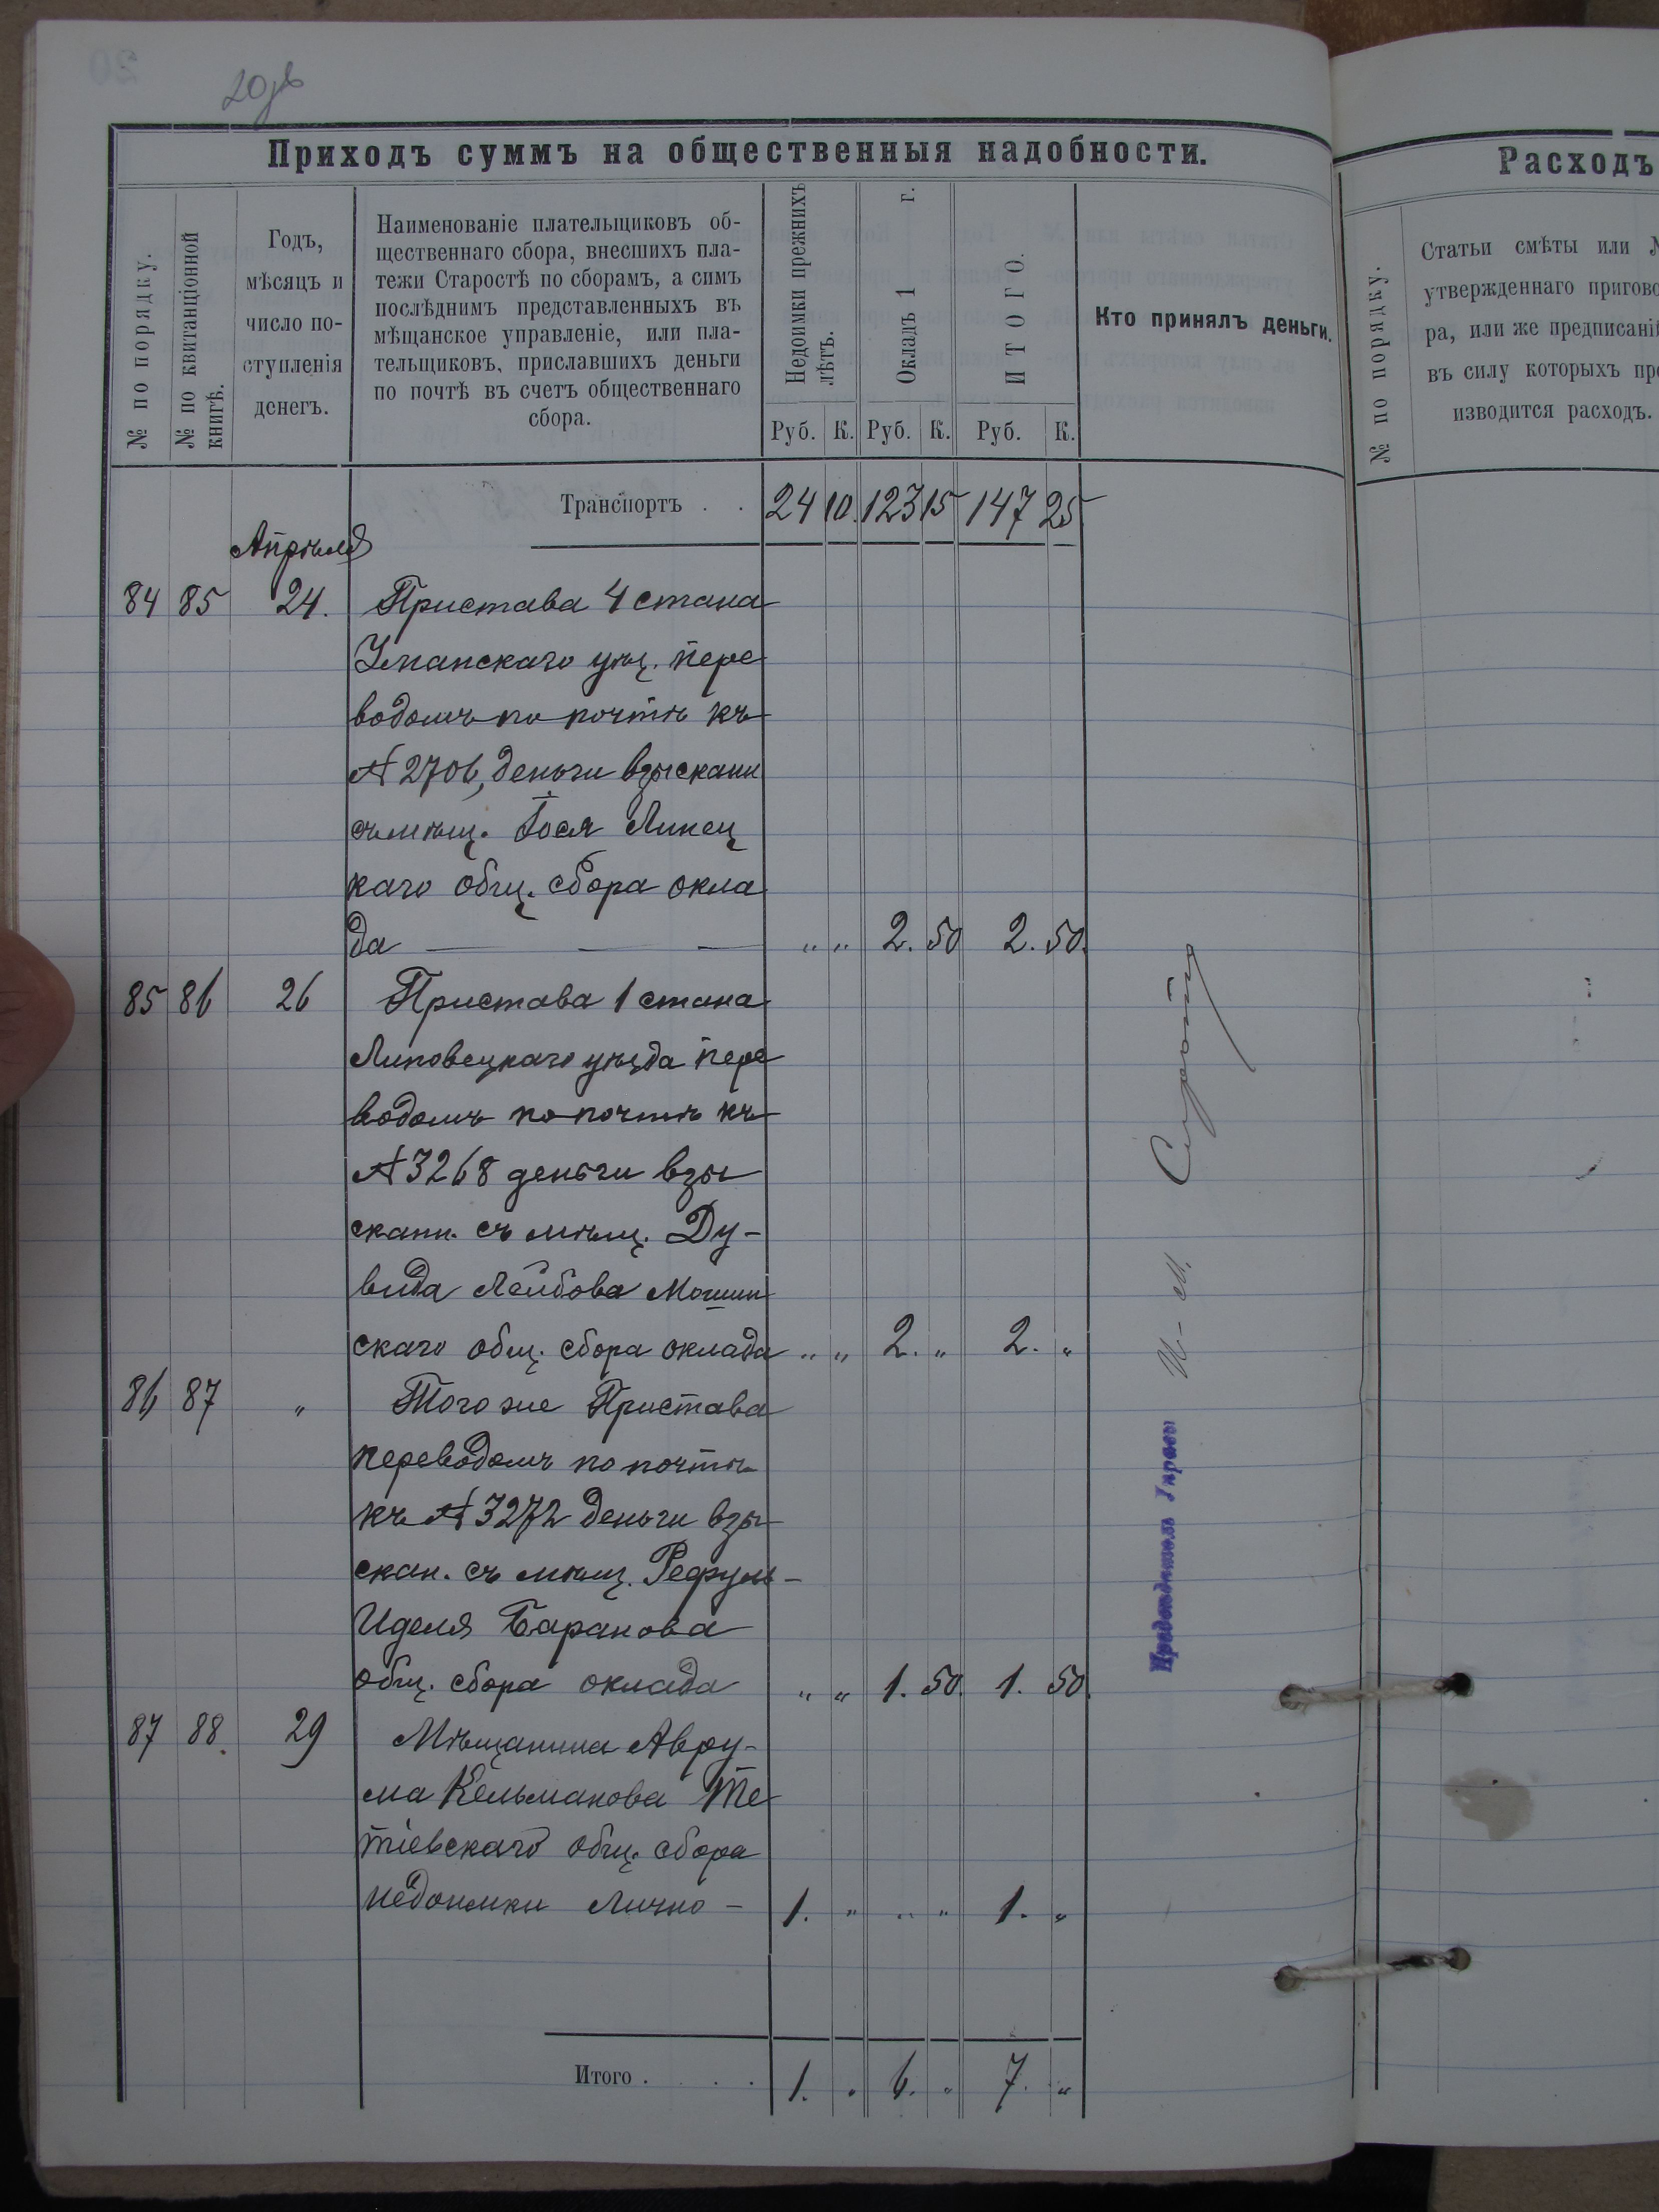 20об
Приходъ суммъ на общественныя надобности.
№ по порядку.
№ по квитанціонной
книгѣ.
Годъ,
мѣсяцъ и
число по-
ступленія
денегъ.
Наименованіе плательщиковъ об-
щественнаго сбора, внесшихъ пла-
тежи Старостѣ по сборамъ, а симъ
послѣднимъ представленныхъ въ
мѣщанское управленіе, или пла-
тельщиковъ, приславшихъ деньги
по почтѣ въ счетъ общественнаго
сбора.
Недоимки прежнихъ
лѣтъ.
Окладъ 1 г.
ИТОГО.
Кто принялъ деньги.
Руб. К. Руб. К. Руб. К.
Транспортъ . . 24 10. 123 15 147 25
Апрѣля
84 85 24. Пристава 4 стана
Уманскаго уѣз. пере
водомъ по почтѣ къ
№ 2706, деньги взыскани
съ мѣщ. Іося Липец
каго общ. сбора окла
да — — — „ „ 2. 50 2. 50.
85 86 26 Пристава 1 стана
Липовецкаго уѣзда пере
водомъ по почтѣ къ
№ 3268 деньги взы
скани. съ мѣщ. Ду-
вида Лейбова Мошин
скаго общ. сбора оклада „ „ 2. „ 2. „
86 87 „ Того же Пристава
переводомъ по почтѣ
къ № 3272 деньги взы
скан. съ мѣщ.
Иделя Баранова
общ. сбора оклада „ „ 1. 50. 1. 50.
87 88. 29 Мѣщанина Авру-
ма Кельманова Те
тіевскаго общ. сбора
недоимки лично - 1. „ „ „ 1. „
Итого . . . . 1. „ 6. „ 7. „
Предсѣдатель Управы
Расходъ
№ по порядку.
Статьи смѣты или №
утвержденнаго пригово
ра, или же предписаній
въ силу которыхъ про
изводится расходъ.